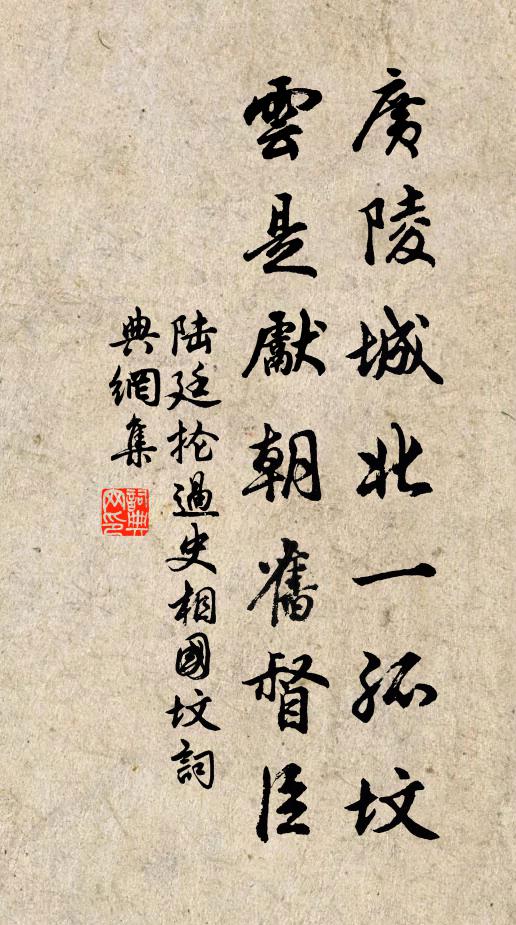 廣陵城北一孤墳
雲是勵朝舊督臣
陸廷掄過史相國墳詞
典網集
詞典網印